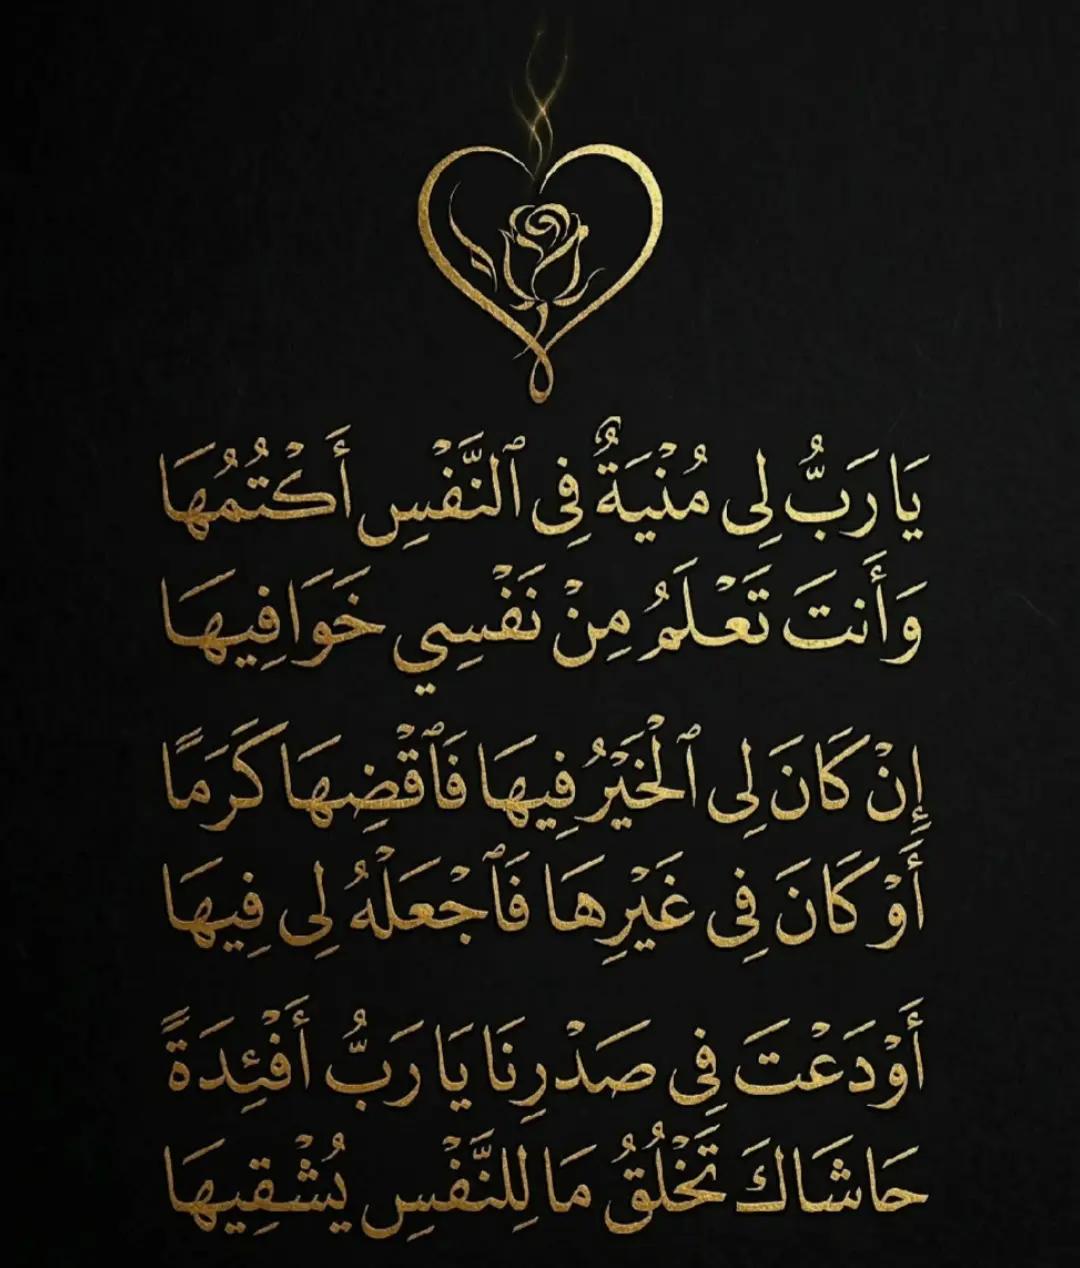 يَا رَبُّ لِى مُنْيَةٌ فِى ٱلنَّفْسِ أَكْتُمُهَا
وَأَنتَ تَعْلَمُ مِنْ نَفْسِي خَوَافِيهَا
إِنْ كَانَ لِى ٱلْخَيْرُ فِيهَا فَٱقْضِهَا كَرَمًا
أَوْ كَانَ فِى غَيْرِهَا فَٱجْعَلْهُ لِى فِيهَا
أَوْدَعْتَ فِى صَدْرِنَا يَا رَبُّ أَفْئِدَةً
حَاشَاكَ تَخْلُقُ مَا لِلنَّفْسِ يُشْقِيهَا